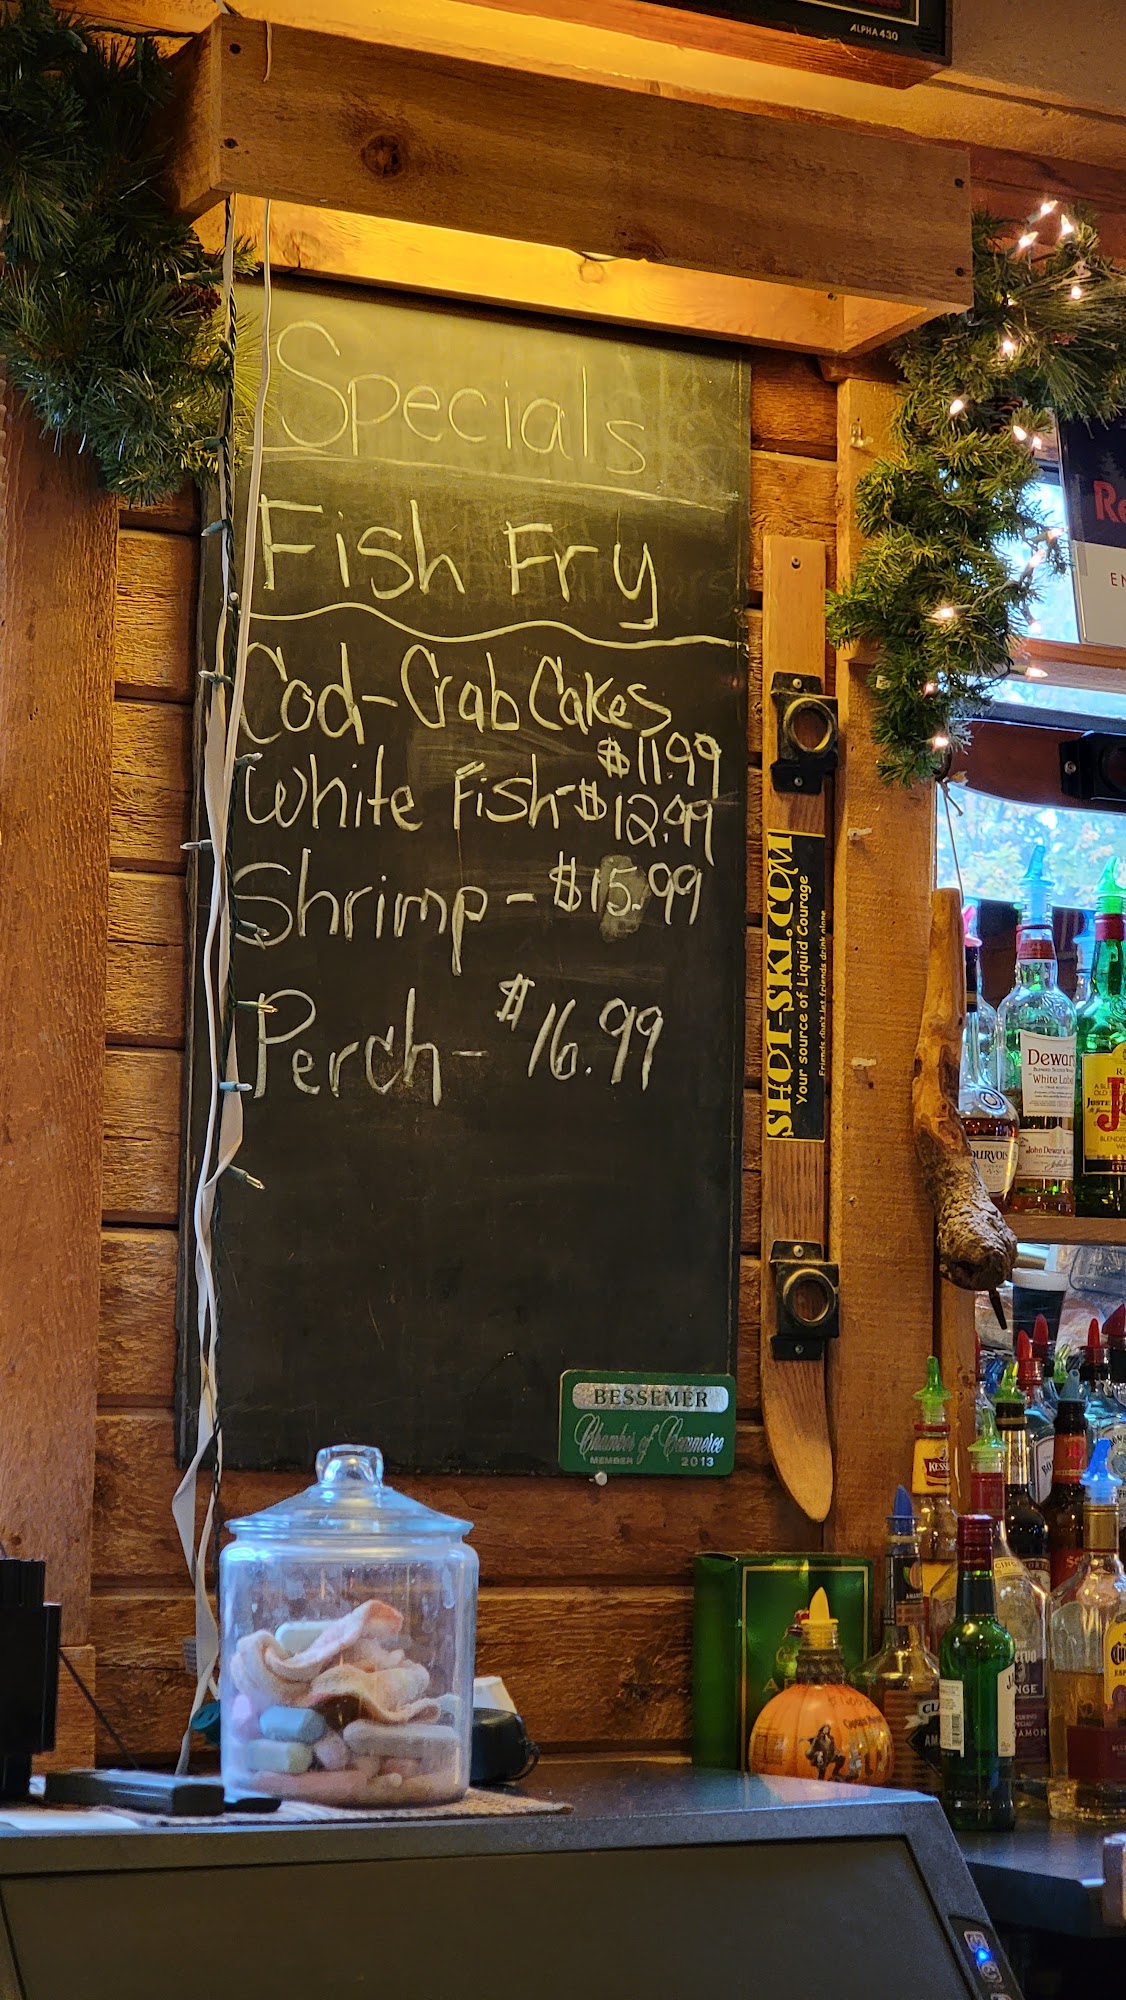 ALPHA 430
Specials
Fish Fry
Cod-Crab Cakes
$11.99
White Fish-$12.99
Shrimp-$15.99
Perch-$16.99
SHOT-SKI.COM
Your source of Liquid Courage
Friends don't let friends drink alone
BESSEMER
Chamber of Commerce
MEMBER 2013
Dewar
White Label
John Dewar &